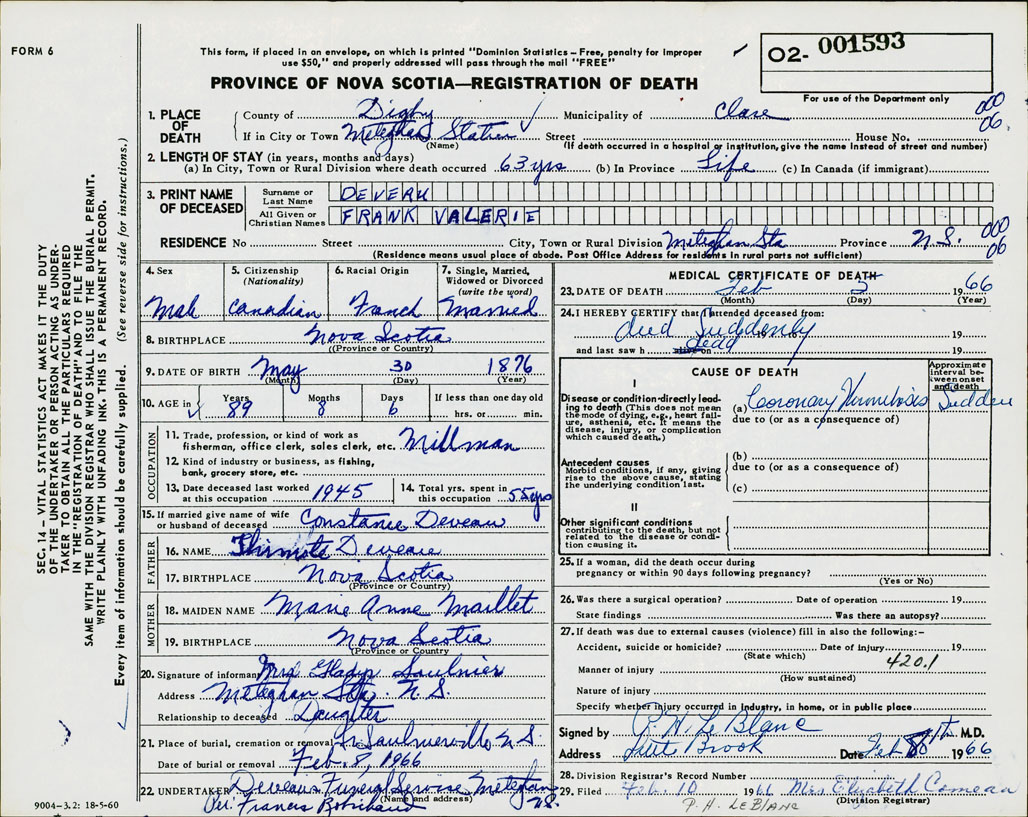 FORM 6
This form, if placed in an envelope, on which is printed "Dominion Statistics – Free, penalty for improper
use $50," and properly addressed will pass through the mail "FREE"
O2- 001593
For use of the Department only
PROVINCE OF NOVA SCOTIA—REGISTRATION OF DEATH
1. PLACE OF DEATH County of Digby Municipality of Clare 000 06
If in City or Town Meteghan Station Street House No.
(Name) (If death occurred in a hospital or institution, give the name instead of street and number)
2. LENGTH OF STAY (in years, months and days)
(a) In City, Town or Rural Division where death occurred 63 yrs (b) In Province Life (c) In Canada (if immigrant)
3. PRINT NAME OF DECEASED Surname or Last Name DEVEAU
All Given or Christian Names FRANK VALERIE
RESIDENCE No Street City, Town or Rural Division Meteghan Sta Province N.S. 000 06
(Residence means usual place of abode. Post Office Address for residents in rural parts not sufficient)
4. Sex 5. Citizenship (Nationality) 6. Racial Origin 7. Single, Married, Widowed or Divorced (write the word)
Male Canadian French Married
8. BIRTHPLACE Nova Scotia
(Province or Country)
9. DATE OF BIRTH May 30 1876
(Month) (Day) (Year)
10. AGE in Years Months Days If less than one day old
89 8 6 hrs. or min.
OCCUPATION
11. Trade, profession, or kind of work as
fisherman, office clerk, sales clerk, etc. Millman
12. Kind of industry or business, as fishing,
bank, grocery store, etc.
13. Date deceased last worked at this occupation 1945 14. Total yrs. spent in this occupation 55 yrs
15. If married give name of wife
or husband of deceased Constance Deveau
FATHER
16. NAME Deveau
17. BIRTHPLACE Nova Scotia
(Province or Country)
MOTHER
18. MAIDEN NAME Marie Anne Maillet
19. BIRTHPLACE Nova Scotia
(Province or Country)
20. Signature of informant Mrs Gladys Saulnier
Address Meteghan Sta. N.S.
Relationship to deceased Daughter
21. Place of burial, cremation or removal Saulnierville N.S.
Date of burial or removal Feb. 8, 1966
22. UNDERTAKER Deveau Funeral Service Meteghan N.S.
(Name and address)
Per: Francis Robichaud
9004-3.2: 18-5-60
MEDICAL CERTIFICATE OF DEATH
23. DATE OF DEATH Feb 5 1966
(Month) (Day) (Year)
24. I HEREBY CERTIFY that I attended deceased from:
died Suddenly 19
and last saw h alive on dead 19
CAUSE OF DEATH
Approximate interval between onset and death
I
Disease or condition directly leading to death (This does not mean the mode of dying, e.g., heart failure, asthenia, etc. It means the disease, injury, or complication which caused death.)
(a) Coronary Thrombosis Sudden
due to (or as a consequence of)
Antecedent causes
Morbid conditions, if any, giving rise to the above cause, stating the underlying condition last.
(b)
due to (or as a consequence of)
(c)
II
Other significant conditions
contributing to the death, but not related to the disease or condition causing it.
25. If a woman, did the death occur during
pregnancy or within 90 days following pregnancy?
(Yes or No)
26. Was there a surgical operation? Date of operation 19
State findings Was there an autopsy?
27. If death was due to external causes (violence) fill in also the following:–
Accident, suicide or homicide? Date of injury 19
(State which)
Manner of injury 420.1
(How sustained)
Nature of injury
Specify whether injury occurred in industry, in home, or in public place
Signed by P. H. Le Blanc M.D.
Address Little Brook Date Feb 8th 1966
28. Division Registrar's Record Number
29. Filed Feb. 10 1966 Mrs Elizabeth Comeau
(Division Registrar)
P. H. LeBLANC
SEC. 14 – VITAL STATISTICS ACT MAKES IT THE DUTY
OF THE UNDERTAKER OR PERSON ACTING AS UNDER-
TAKER TO OBTAIN ALL THE PARTICULARS REQUIRED
IN THE "REGISTRATION OF DEATH" AND TO FILE THE
SAME WITH THE DIVISION REGISTRAR WHO SHALL ISSUE THE BURIAL PERMIT.
WRITE PLAINLY WITH UNFADING INK. THIS IS A PERMANENT RECORD.
Every item of information should be carefully supplied. (See reverse side for instructions.)